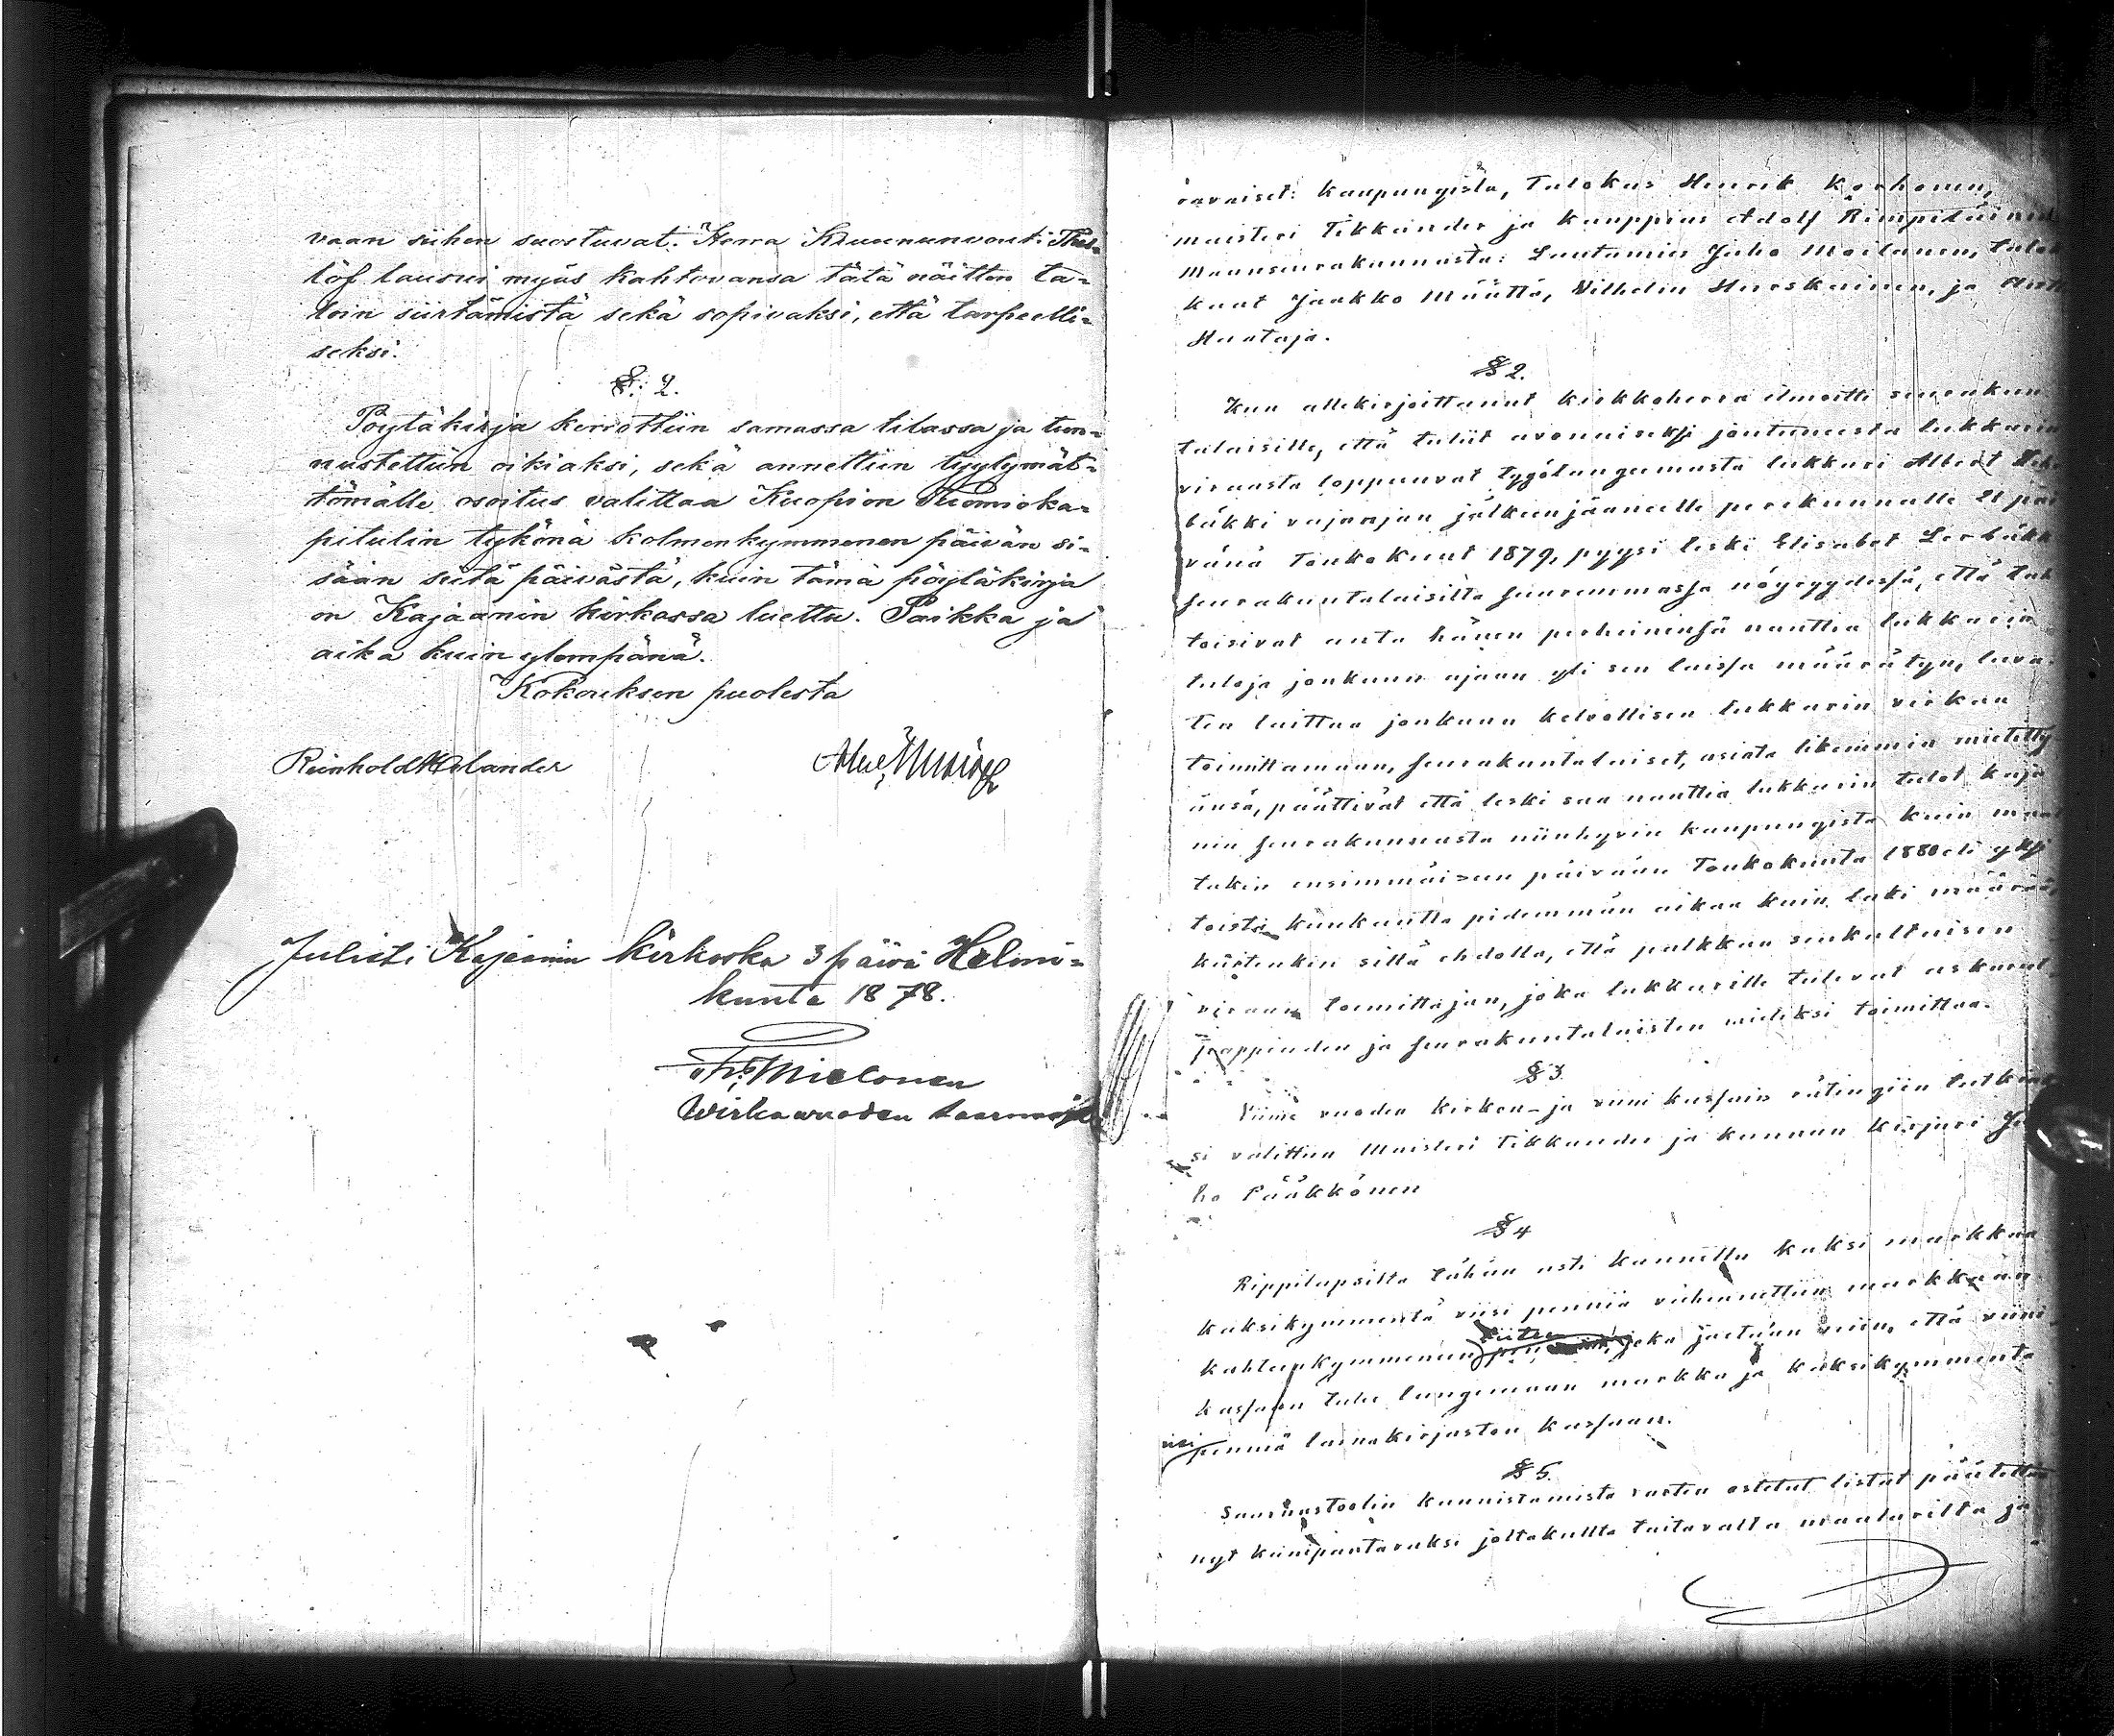 vaan siihen suostuvat. Herra Kruununvouti Thes-
löf lausui myös kahtovansa tätä näitten ta-
loin siirtämistä sekä sopivaksi, että tarpeelli-
seksi.
§: 2.
Pöytäkirja kerrottiin samassa tilassa ja tun-
nustettiin oikiaksi, sekä annettiin tyytymät-
tömälle osoitus valittaa Kuopion Tuomioka-
pitulin tykönä kolmenkymmenen päivän si-
sään siitä päivästä, kuin tämä pöytäkirja
on Kajaanin kirkossa luettu. Paikka ja
aika kuin ylempänä.
Kokouksen puolesta
Reinhold Molander
Julisti Kajaanin kirkoska 3 päivä Helmi-
kuuta 1878.
Mielonen
Wirkawuoden saarnaaja
ravaiset: Kaupungista, Talokas Henrik Korhonen,
maisteri Tikkander ja kauppias Adolf Rimpiläinen
Maanseurakunnasta: Lautamies Juho Moilanen, talok
kaat Jaakko Määttä, Vilhelm Huoskainen, ja Antti
Huotaja.
§ 2.
Kun allekirjoittanut kirkkoherra ilmoitti seurakun
talaisille, että tulit avonaiseksi joutuneesta lukkarin
virasta loppuuvat tygölangeemasta lukkari Albert Ler
bäkki vajanjan jälkeenjääneelle perekunnalle 21 päi
vänä Toukokuut 1879, pyysi leski Elisabet Lerbäkk
seurakuntalaisilta suurimmassa nöyryydessä, että tah
toisivat anta hänen perheinensä nauttia lukkarin
tuloja jonkuun ajaan yli sen laissa määrätyn, luva-
ten laittaa jonkuun kelvollisen lukkarin virkaa
toimittamaan, seurakuntalaiset, asiata likemmin mietitty
änsä, päättivät että leski saa nauttia lukkarin tulot Kaja
nin seurakunnasta niinhyvin kaupungista kuin maal
takin ensimmäiseen päivään Toukokuuta 1880 eli yksi
toista kuukautta pidemmän aikaa kuin laki määrää,
kuitenkin sillä ehdolla, että palkkaa senkaltaisen
viraan toimittajan, joka lukkarille tulevat askareet
pappinden ja seurakuntalaisten mieliksi toimittaa.
§ 3.
Viime vuoden kirkon- ja viini kassain rätingien tutkiak
si valittiin Maisteri Tikkander ja kunnan kirjuri Ju
ho Pääkkönen
§ 4
Rippilapsilta tähän asti kannettu kaksi markkaa
kaksikymmentä viisi penniä vähennettiin markkaan
viiteen
kahteenkymmeneen joka jaetaan niin, että viini
kassaan tulee langemaan markka ja kaksikymmentä
viisi penniä lainakirjaston kassaan.
§ 5.
Saarnastoolin kaunistamista varten ostetut listat päätettiin
nyt kiinipantavaksi joltakulta taitavalta maalarilta ja